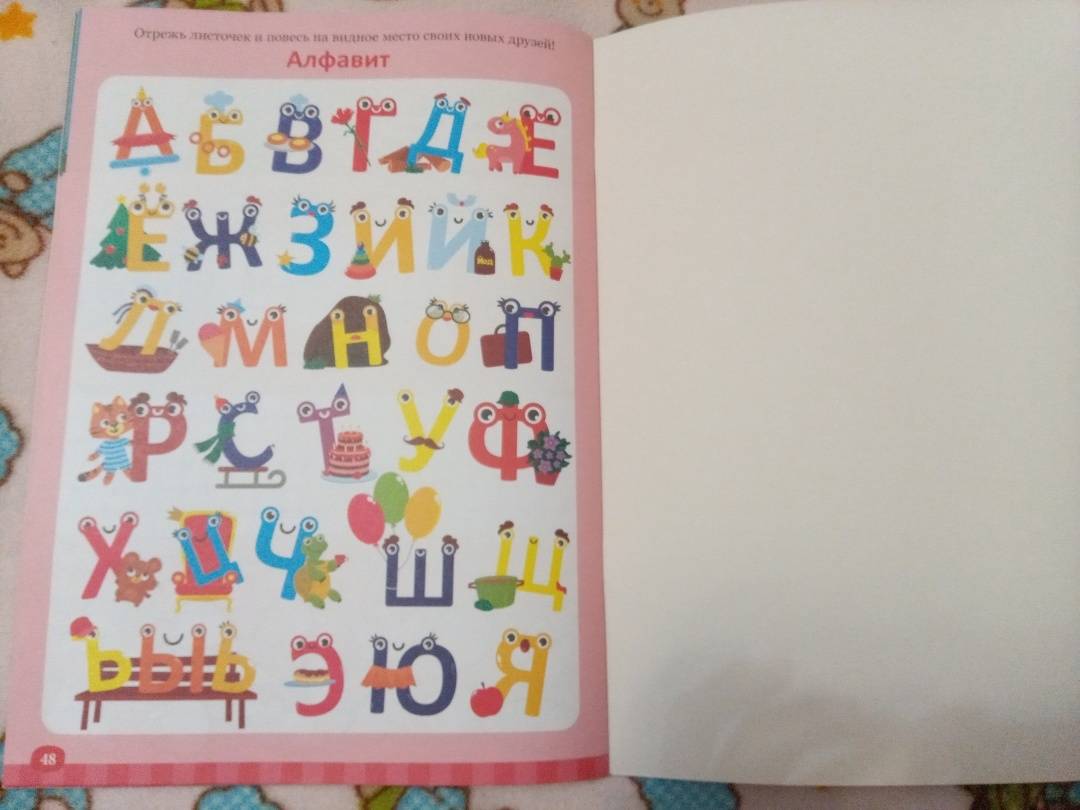 Отрежь листочек и повесь на видное место своих новых друзей!
Алфавит
А Б В Г Д Е
Ё Ж З И Й К
Йод
Л М Н О П
Р С Т У Ф
Х Ц Ч Ш Щ
Ъ Ы Ь Э Ю Я
48